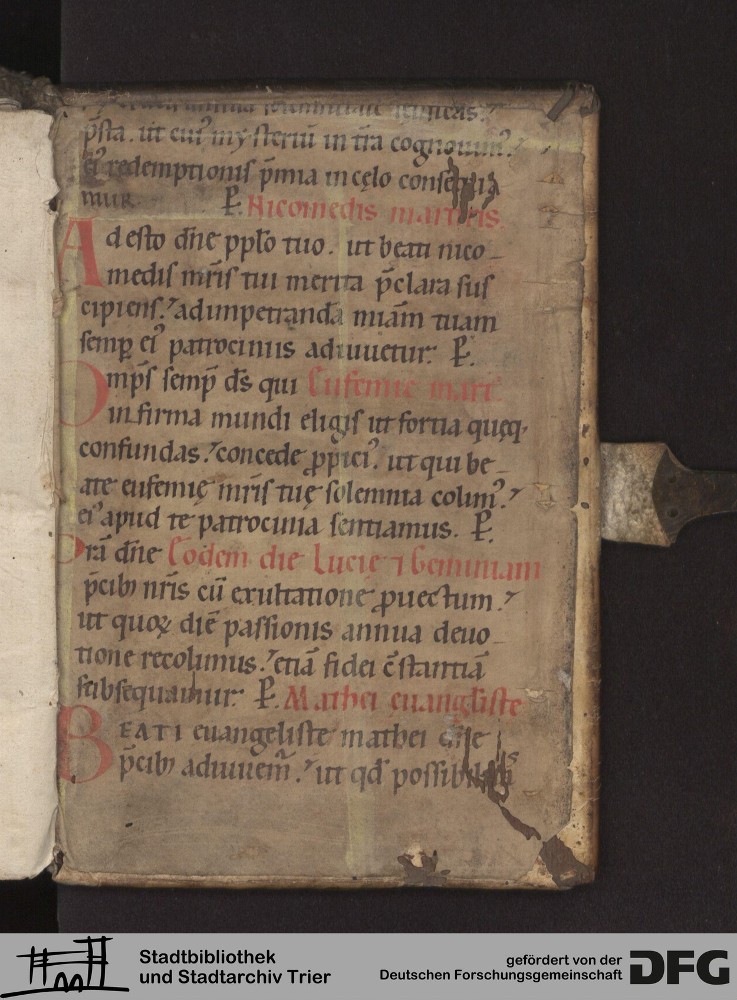 p̄sta. ut eiꝰ mysteriū in tr̄a cognouimꝰ.
eiꝰ redemptionis p̄mia in celo conse
mur. P̷. Nicomedis martiris
Adesto dn̄e pplo tuo. ut beati nico-
medis mr̄is tui merita p̄clara sus
cipiens. ad inpetranda mi̅am tuam
semp̄ eiꝰ patrociniis adiuuetur. P̷.
Omps̄ semp̄ ds̄ qui Eufemie mart̄.
infirma mundi eligis ut fortia queq;
confundas. concede p̱piciꝰ. ut qui be-
ate eufemię mr̄is tuę solemnia colimꝰ.
eiꝰ apud te patrocinia sentiamus. P̷.
Pr̄a dn̄e Eodem die Lucię ⁊ Geminiani
p̄cib; nr̄is cū exultatione ꝓuectum.
ut quoꝝ diē passionis annua deuo-
tione recolimus. etiā fidei c̄stantiā
subsequamur. P̷. Mathei euangliste
BEATI euangeliste mathei dn̄e
p̄cib; adiuuem̄. ut qd̄ possibilitas
Stadtbibliothek
und Stadtarchiv Trier
gefördert von der
Deutschen Forschungsgemeinschaft
DFG